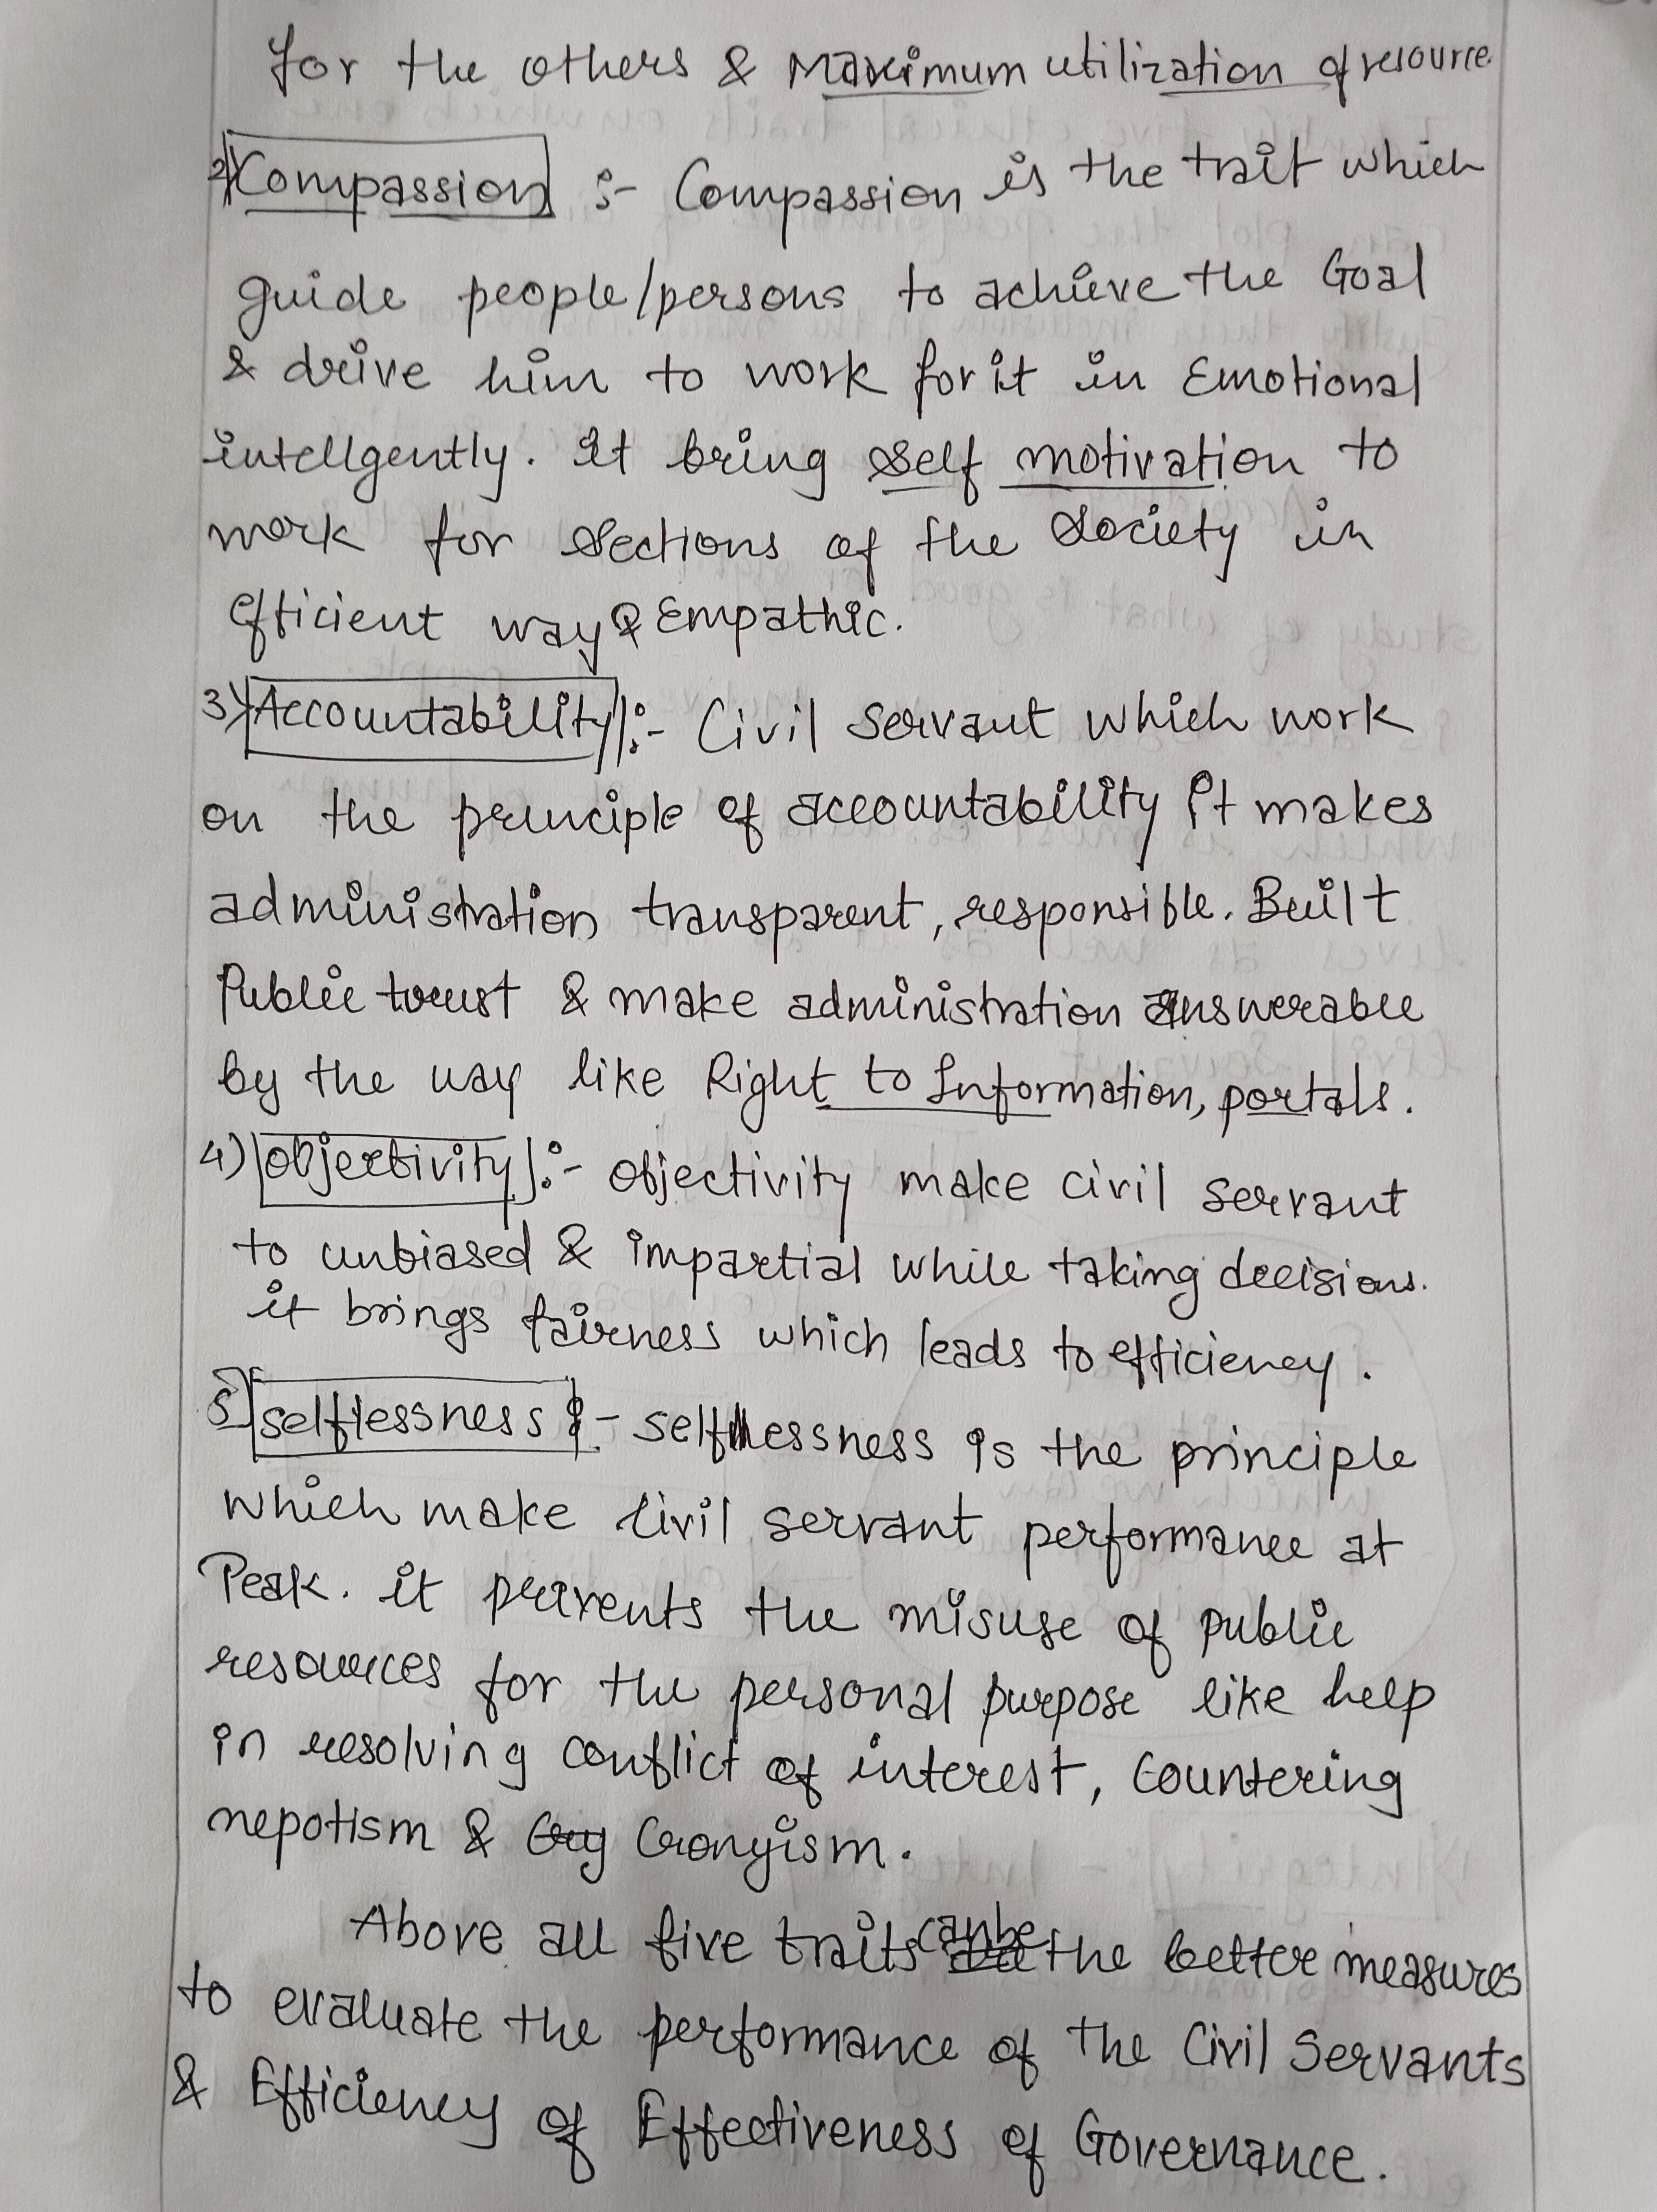 for the others & Maximum utilization of resource
2) Compassion :- Compassion is the trait which
guide people/persons to achieve the Goal
& drive him to work for it in Emotional
intellgently. It bring self motivation to
work for sections of the Society in
efficient way & Empathic.
3) Accountability :- Civil servant which work
on the principle of accountability it makes
administration transparent, responsible. Built
Public trust & make administration answerable
by the way like Right to Information, portals.
4) objectivity :- objectivity make civil servant
to unbiased & impartial while taking decisions.
it brings fairness which leads to efficiency.
5) selflessness :- selflessness is the principle
which make civil servant performance at
Peak. it prevents the misuse of public
resources for the personal purpose like help
in resolving conflict of interest, countering
nepotism & Cronyism.
Above all five traits can be the better measures
to evaluate the performance of the Civil Servants
& Efficiency of Effectiveness of Governance.